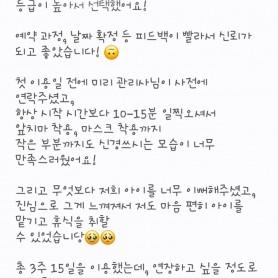 등급이 높아서 선택했어요!
예약 과정, 날짜 확정 등 피드백이 빨라서 신뢰가
되고 좋았습니다! 🙃
첫 이용일 전에 미리 관리사님이 사전에
연락주셨고,
항상 시작 시간보다 10-15분 일찍오셔서
앞치마 착용, 마스크 착용까지
작은 부분까지도 신경쓰시는 모습이 너무
만족스러웠어요!
그리고 무엇보다 저희 아이를 너무 이뻐해주셨고,
진심으로 그게 느껴져서 저도 마음 편히 아이를
맡기고 휴식을 취할
수 있었습니당🥺🥺
총 3주 15일을 이용했는데, 연장하고 싶을 정도로